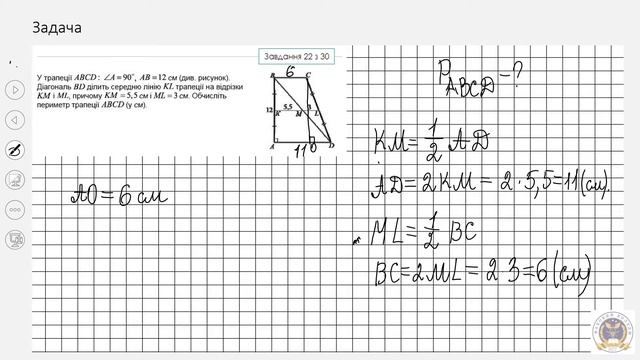 Задача
Завдання 22 з 30
У трапеції ABCD: ∠A = 90°, AB = 12 см (див. рисунок).
Діагональ BD ділить середню лінію KL трапеції на відрізки
KM і ML, причому KM = 5,5 см і ML = 3 см. Обчисліть
периметр трапеції ABCD (у см).
6
B C
12 K 5,5 M 3 L
A 11 O D
AO = 6 см
P ABCD - ?
KM = 1/2 AD
AD = 2KM = 2 · 5,5 = 11 (см).
ML = 1/2 BC
BC = 2ML = 2 · 3 = 6 (см)